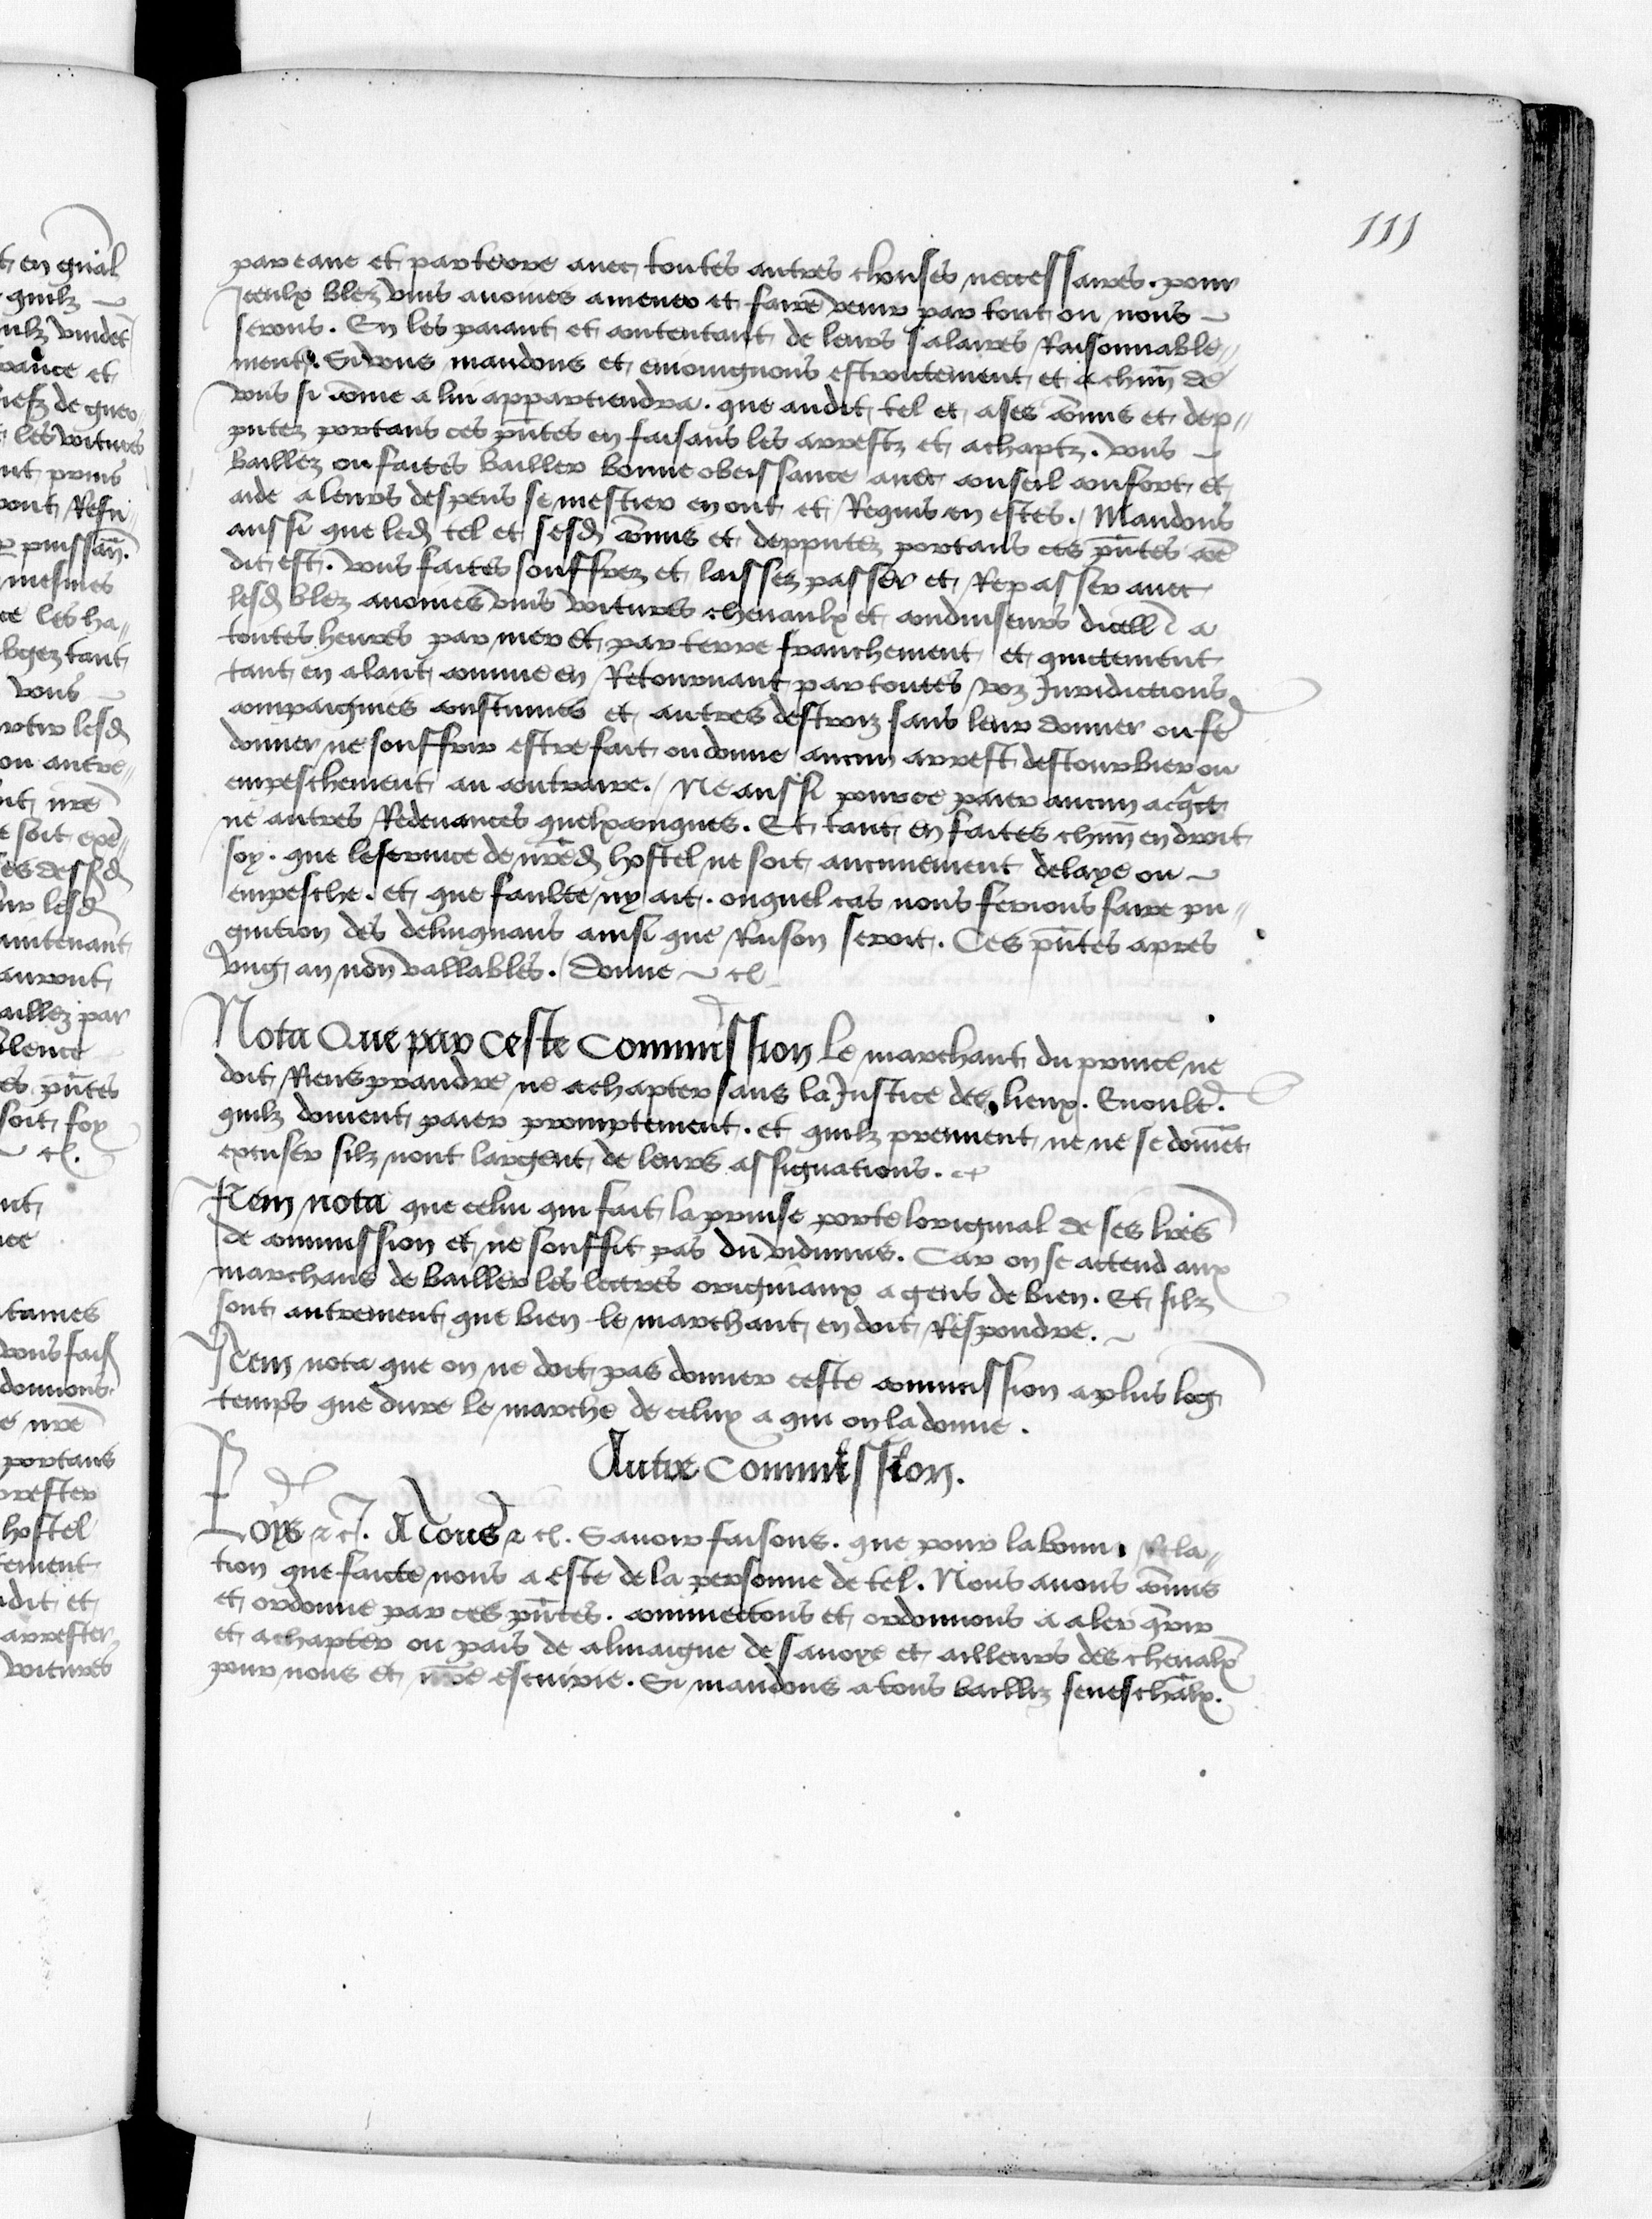 111
par eaue et par terre avec toutes autres chouses necessaires. pour
Iceulx blez vins avoines amener et faire venir par tout ou nous
serons. En les paiant et contentant de leurs salaires Raisonnable〃
ment. Si vous mandons et enioingnons estroictement et a chūn de
vous si cōme a lui appartiendra. que audit tel et a ses cōmis et dep〃
putez portans ces pn̄tes en faisans les arrestz et achaptz. vous
baillez ou faites bailler bonne obeissance avec conseil confort et
aide a leurs despens se mestier en ont et Requis en estes. Mandons
aussi que led tel et sesd cōmis et depputez portans ces pn̄tes cōe
dit est. vous faites souffrez et laissez passer et Repasser avec
lesd blez avoines vins voitures chevaulx et conduiseurs dicell a
toutes heures par mer et par terre franchement et quictement
tant en alant comme en Retournant par toutes voz Juridictions
compaignies coustumes et autres destroiz sans leur donner ou fe
donner ne souffrir estre fait ou donne aucun arrest destourbier ou
empeschement au contraire. Ne aussi pour ce paier aucun acqt
ne autres Redevances quelxconques. Et tant en faites chūn endroit
soy. que le service de nr̄ed hostel ne soit aucunement delaye ou
empesche. et que faulte ny ait. ouquel cas nous ferions faire pu〃
gnition des delinquans ainsi que Raison seroit. Ces pn̄tes apres
ung an non vallables. Donne etc
Nota Que par ceste Commission le marchant du prince ne
doit Riens prandre ne achapter sans la Justice des lieux.
quilz doivent paier promptement. et quilz prennent ne ne se doivēt
excuser silz nont largent de leurs assignations. etc
Item nota que celui qui fait la prinse porte loriginal de ses lr̄es
de commission et ne souffit pas du vidimus. Car on se actend aux
marchans de bailler les lectres originaux a gens de bien. Et silz
sont autrement que bien le marchant en doit Respondre.
Item nota que on ne doit pas donner ceste commission a plus log
temps que dure le marche de celux a qui on la donne.
Autre Commission.
Loys etc. A tous etc. Savoir faisons. que pour la bonne Rela〃
tion que faicte nous a este de la personne de tel. Nous avons cōmis
et ordonne par ces pn̄tes. commectons et ordonnons a aler q̄rir
et achapter ou pais de almaigne de savoye et ailleurs des chevalx
pour nous et nr̄e escuirie. Si mandons a tous bailliz seneschalx.